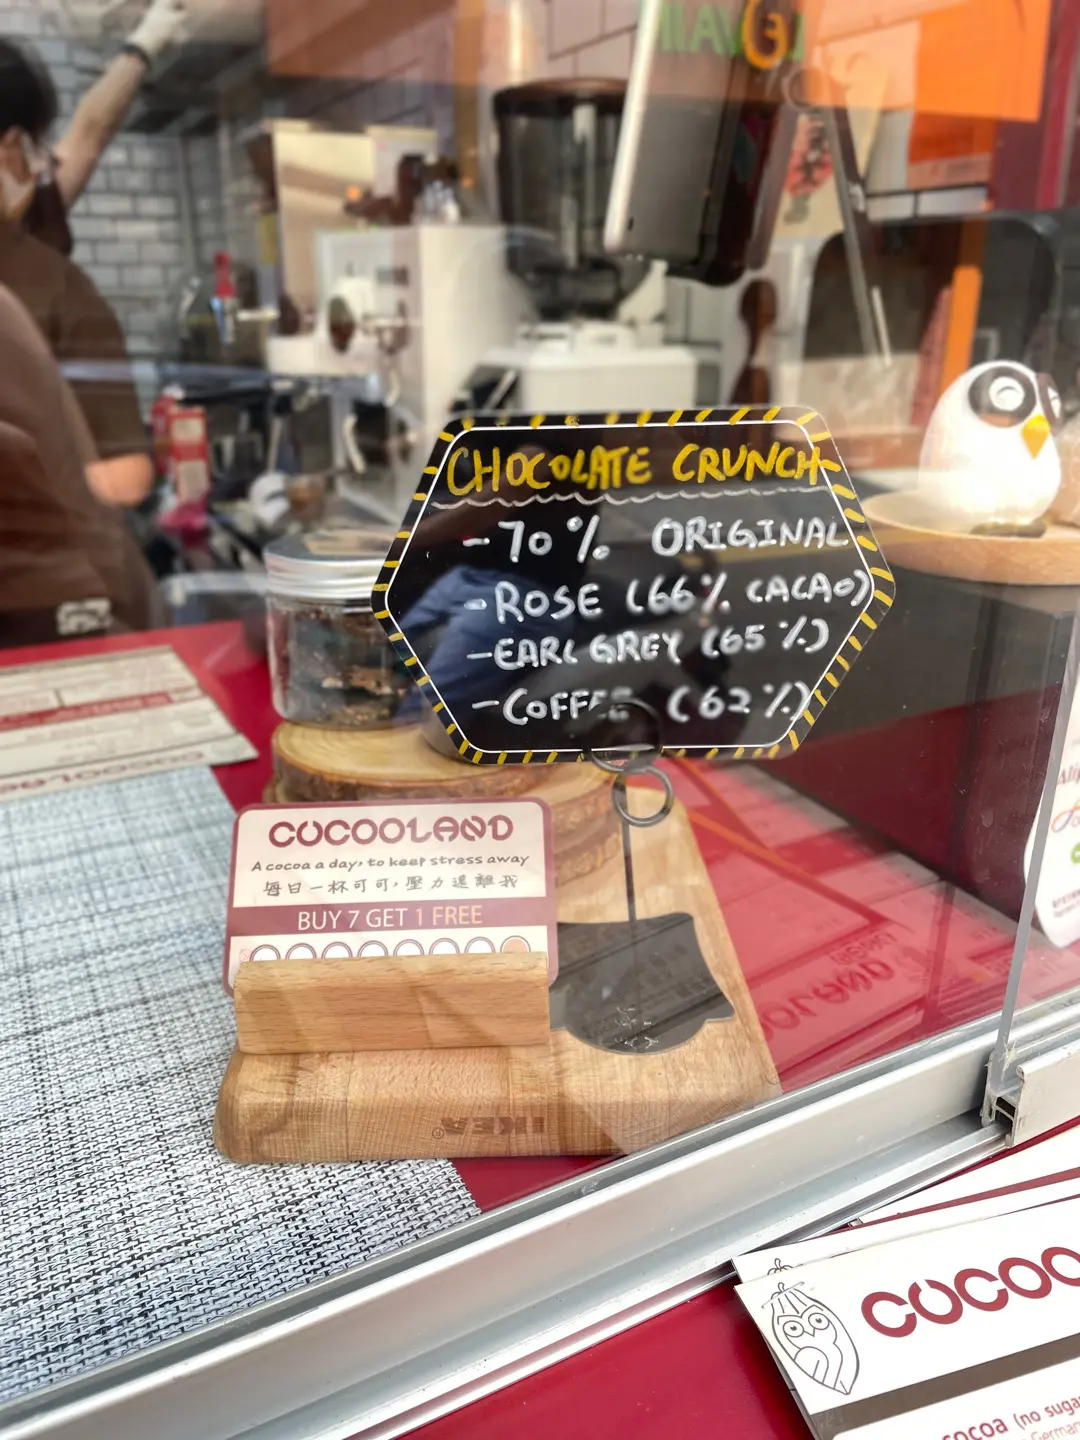 CHOCOLATE CRUNCH
- 70 % ORIGINAL
- ROSE (66% CACAO)
- EARL GREY (65 %)
- COFFEE (62 %)
COCOOLAND
A cocoa a day, to keep stress away
每日一杯可可，壓力遠離我
BUY 7 GET 1 FREE
IKEA®
COCOO
cocoa (no suga
German